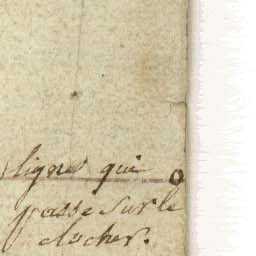 ligne qui
passe sur le
clocher.